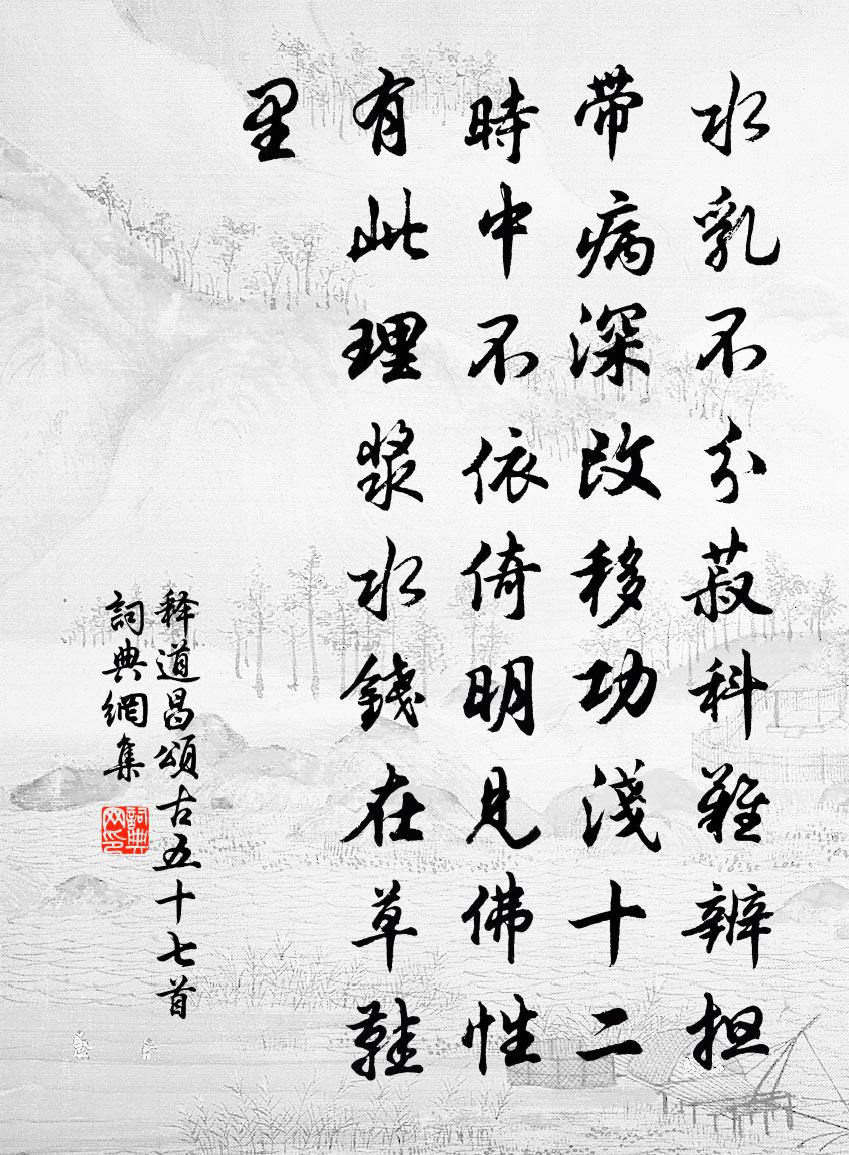 水乳不分菽科難辨担
带病深改移功淺十二
時中不依倚明見佛性
有此理漿水錢在草鞋
里
释道昌頌古五十七首
詞典網集
詞典网印